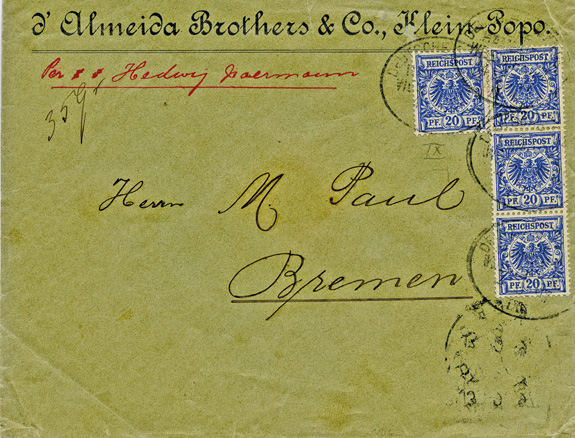 d' Almeida Brothers & Co., Klein-Popo.
Per s s Hedwig Woermann
REICHSPOST
PF. 20 PF.
REICHSPOST
PF. 20 PF.
REICHSPOST
PF. 20 PF.
REICHSPOST
PF. 20 PF.
IX
Herrn M. Paul
Bremen